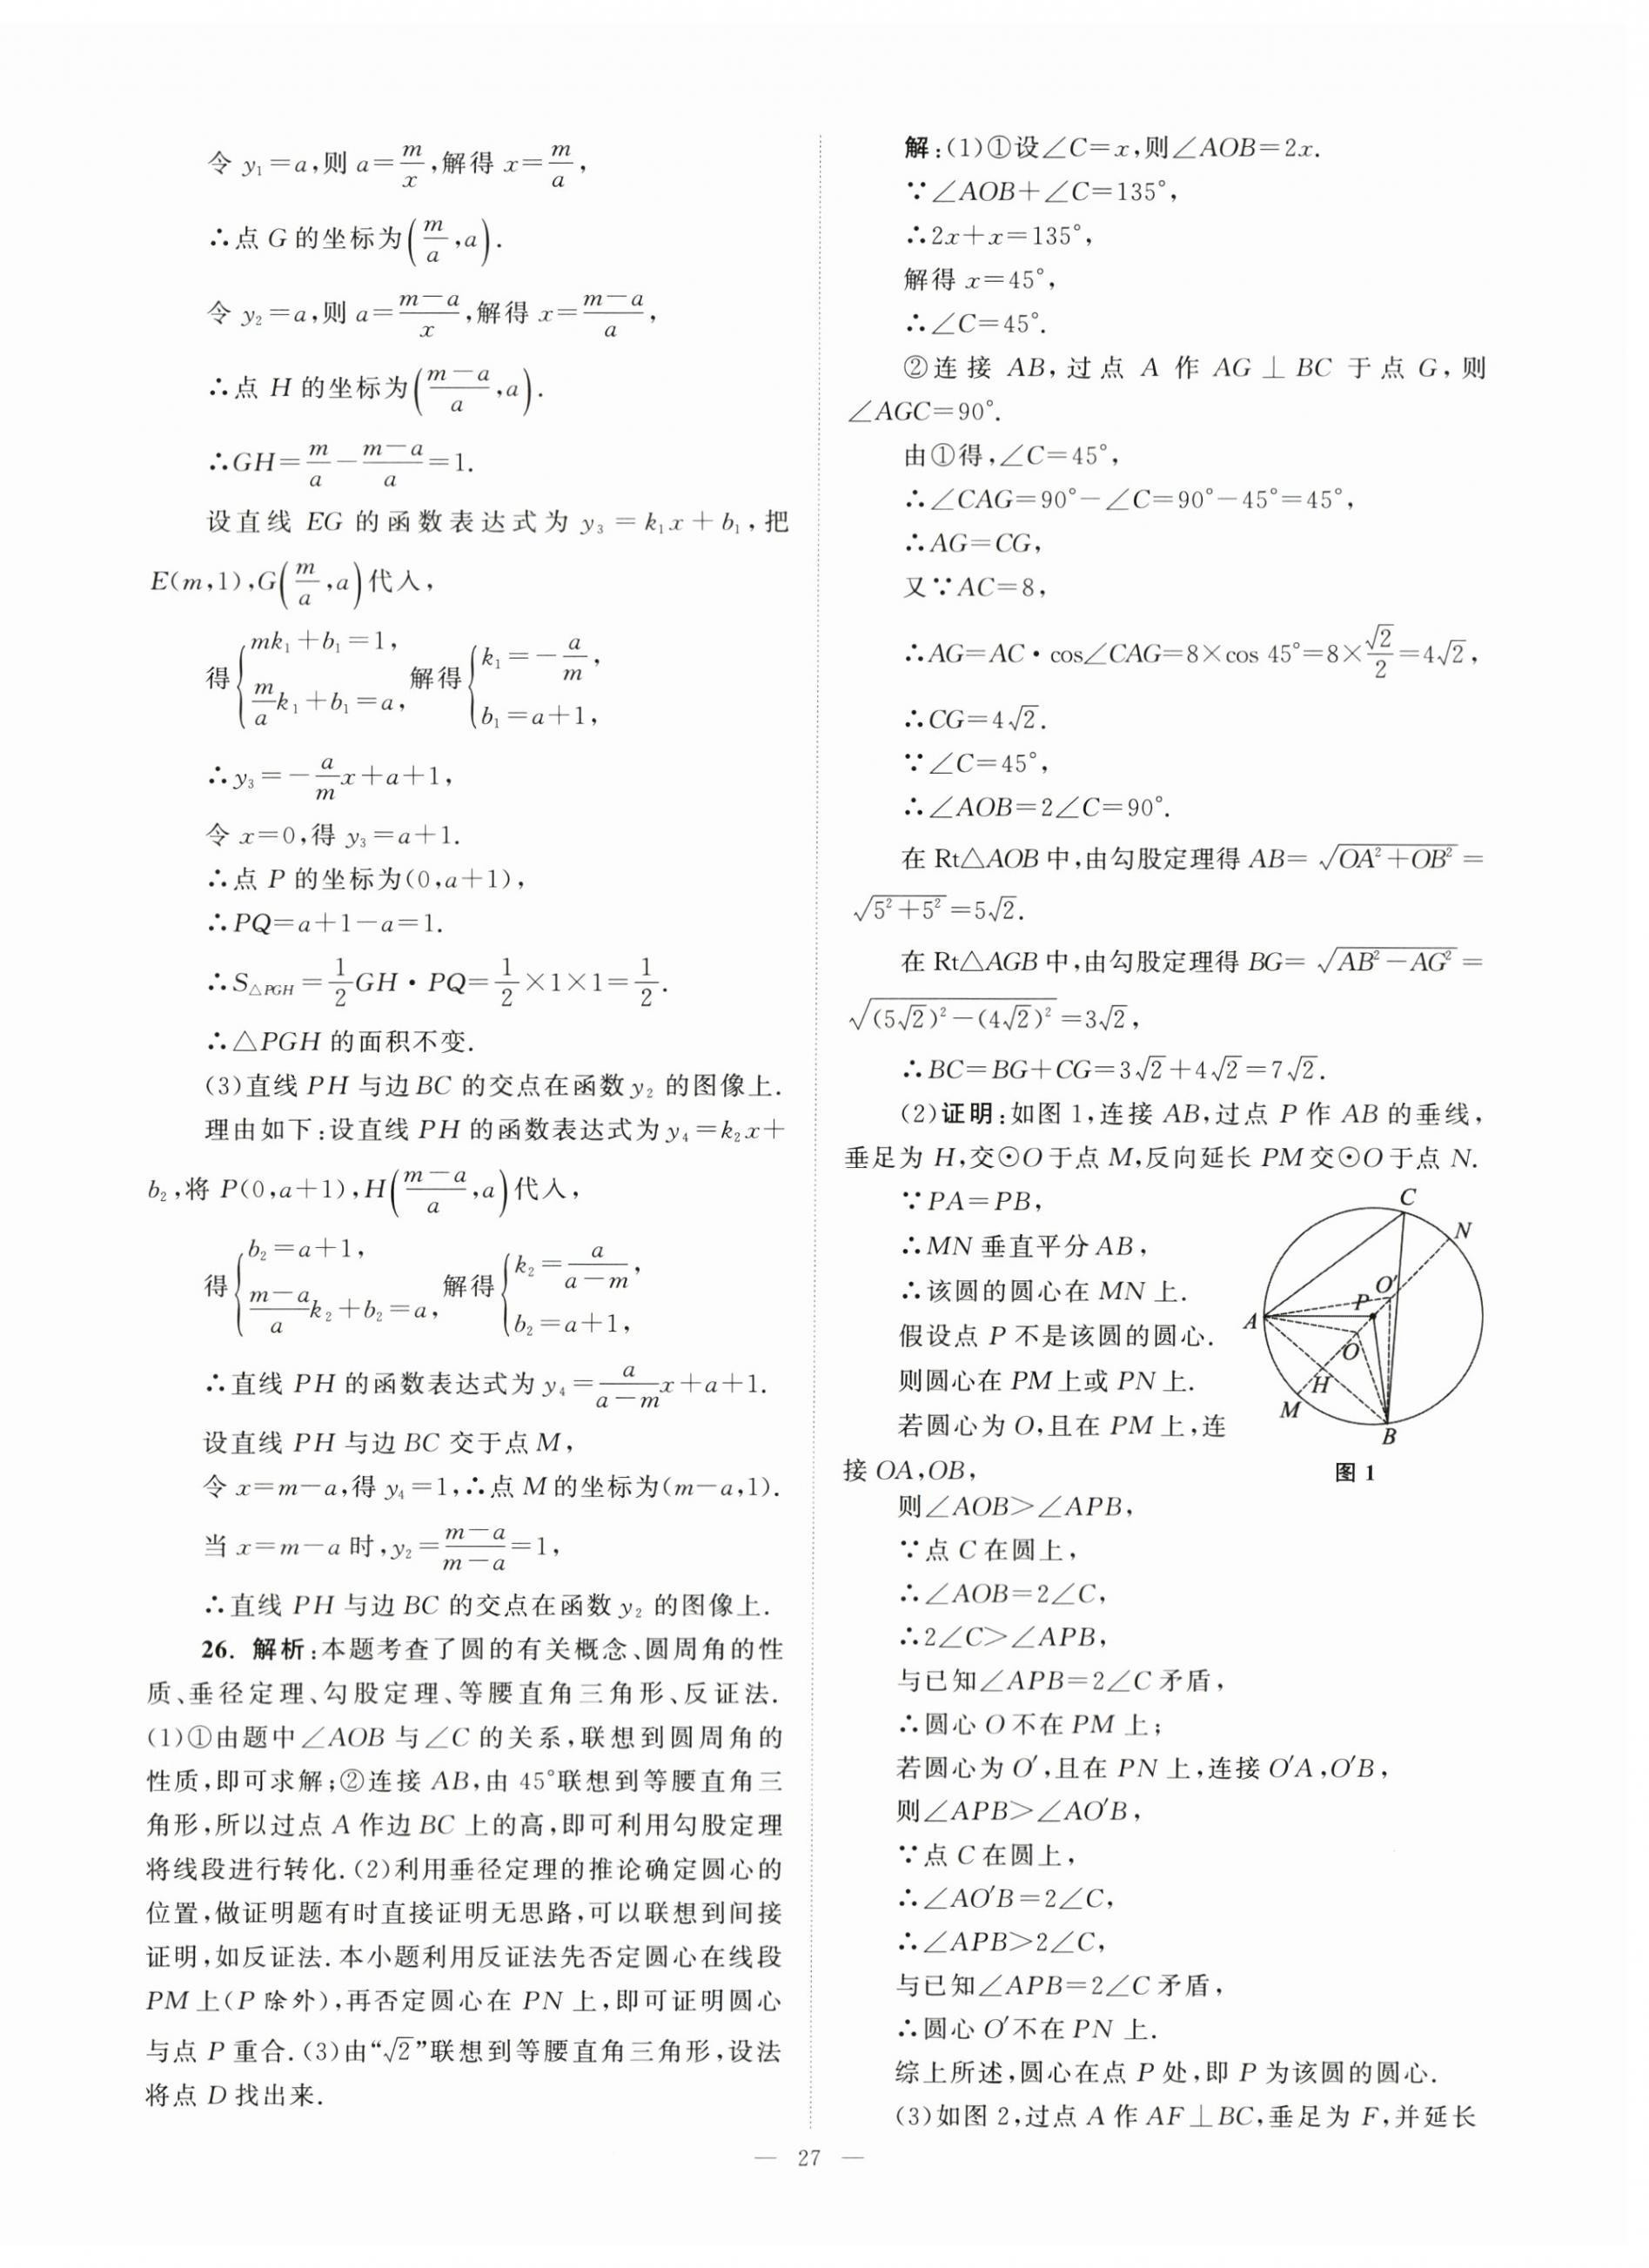 令 y₁=a,则 a=m/x,解得 x=m/a,
∴点 G 的坐标为(m/a,a).
令 y₂=a,则 a=(m-a)/x,解得 x=(m-a)/a,
∴点 H 的坐标为((m-a)/a,a).
∴GH=m/a-(m-a)/a=1.
设直线 EG 的函数表达式为 y₃=k₁x+b₁,把
E(m,1),G(m/a,a)代入,
得{mk₁+b₁=1, (m/a)k₁+b₁=a, 解得{k₁=-a/m, b₁=a+1,
∴y₃=-(a/m)x+a+1,
令 x=0,得 y₃=a+1.
∴点 P 的坐标为(0,a+1),
∴PQ=a+1-a=1.
∴S△PGH=1/2GH·PQ=1/2×1×1=1/2.
∴△PGH 的面积不变.
(3)直线 PH 与边 BC 的交点在函数 y₂ 的图像上.
理由如下:设直线 PH 的函数表达式为 y₄=k₂x+
b₂,将 P(0,a+1),H((m-a)/a,a)代入,
得{b₂=a+1, ((m-a)/a)k₂+b₂=a, 解得{k₂=a/(a-m), b₂=a+1,
∴直线 PH 的函数表达式为 y₄=(a/(a-m))x+a+1.
设直线 PH 与边 BC 交于点 M,
令 x=m-a,得 y₄=1,∴点 M 的坐标为(m-a,1).
当 x=m-a 时,y₂=(m-a)/(m-a)=1,
∴直线 PH 与边 BC 的交点在函数 y₂ 的图像上.
26. 解析:本题考查了圆的有关概念、圆周角的性
质、垂径定理、勾股定理、等腰直角三角形、反证法.
(1)①由题中∠AOB 与∠C 的关系,联想到圆周角的
性质,即可求解;②连接 AB,由 45°联想到等腰直角三
角形,所以过点 A 作边 BC 上的高,即可利用勾股定理
将线段进行转化.(2)利用垂径定理的推论确定圆心的
位置,做证明题有时直接证明无思路,可以联想到间接
证明,如反证法.本小题利用反证法先否定圆心在线段
PM 上(P 除外),再否定圆心在 PN 上,即可证明圆心
与点 P 重合.(3)由“√2”联想到等腰直角三角形,设法
将点 D 找出来.
解:(1)①设∠C=x,则∠AOB=2x.
∵∠AOB+∠C=135°,
∴2x+x=135°,
解得 x=45°,
∴∠C=45°.
②连接 AB,过点 A 作 AG⊥BC 于点 G,则
∠AGC=90°.
由①得,∠C=45°,
∴∠CAG=90°-∠C=90°-45°=45°,
∴AG=CG,
又∵AC=8,
∴AG=AC·cos∠CAG=8×cos 45°=8×√2/2=4√2,
∴CG=4√2.
∵∠C=45°,
∴∠AOB=2∠C=90°.
在 Rt△AOB 中,由勾股定理得 AB=√(OA²+OB²)=
√(5²+5²)=5√2.
在 Rt△AGB 中,由勾股定理得 BG=√(AB²-AG²)=
√((5√2)²-(4√2)²)=3√2,
∴BC=BG+CG=3√2+4√2=7√2.
(2)证明:如图 1,连接 AB,过点 P 作 AB 的垂线,
垂足为 H,交⊙O 于点 M,反向延长 PM 交⊙O 于点 N.
∵PA=PB,
∴MN 垂直平分 AB,
∴该圆的圆心在 MN 上.
假设点 P 不是该圆的圆心.
则圆心在 PM 上或 PN 上.
若圆心为 O,且在 PM 上,连
接 OA,OB,
C
N
O′
P
A
O
H
M
B
图 1
则∠AOB>∠APB,
∵点 C 在圆上,
∴∠AOB=2∠C,
∴2∠C>∠APB,
与已知∠APB=2∠C 矛盾,
∴圆心 O 不在 PM 上;
若圆心为 O′,且在 PN 上,连接 O′A,O′B,
则∠APB>∠AO′B,
∵点 C 在圆上,
∴∠AO′B=2∠C,
∴∠APB>2∠C,
与已知∠APB=2∠C 矛盾,
∴圆心 O′不在 PN 上.
综上所述,圆心在点 P 处,即 P 为该圆的圆心.
(3)如图 2,过点 A 作 AF⊥BC,垂足为 F,并延长
— 27 —